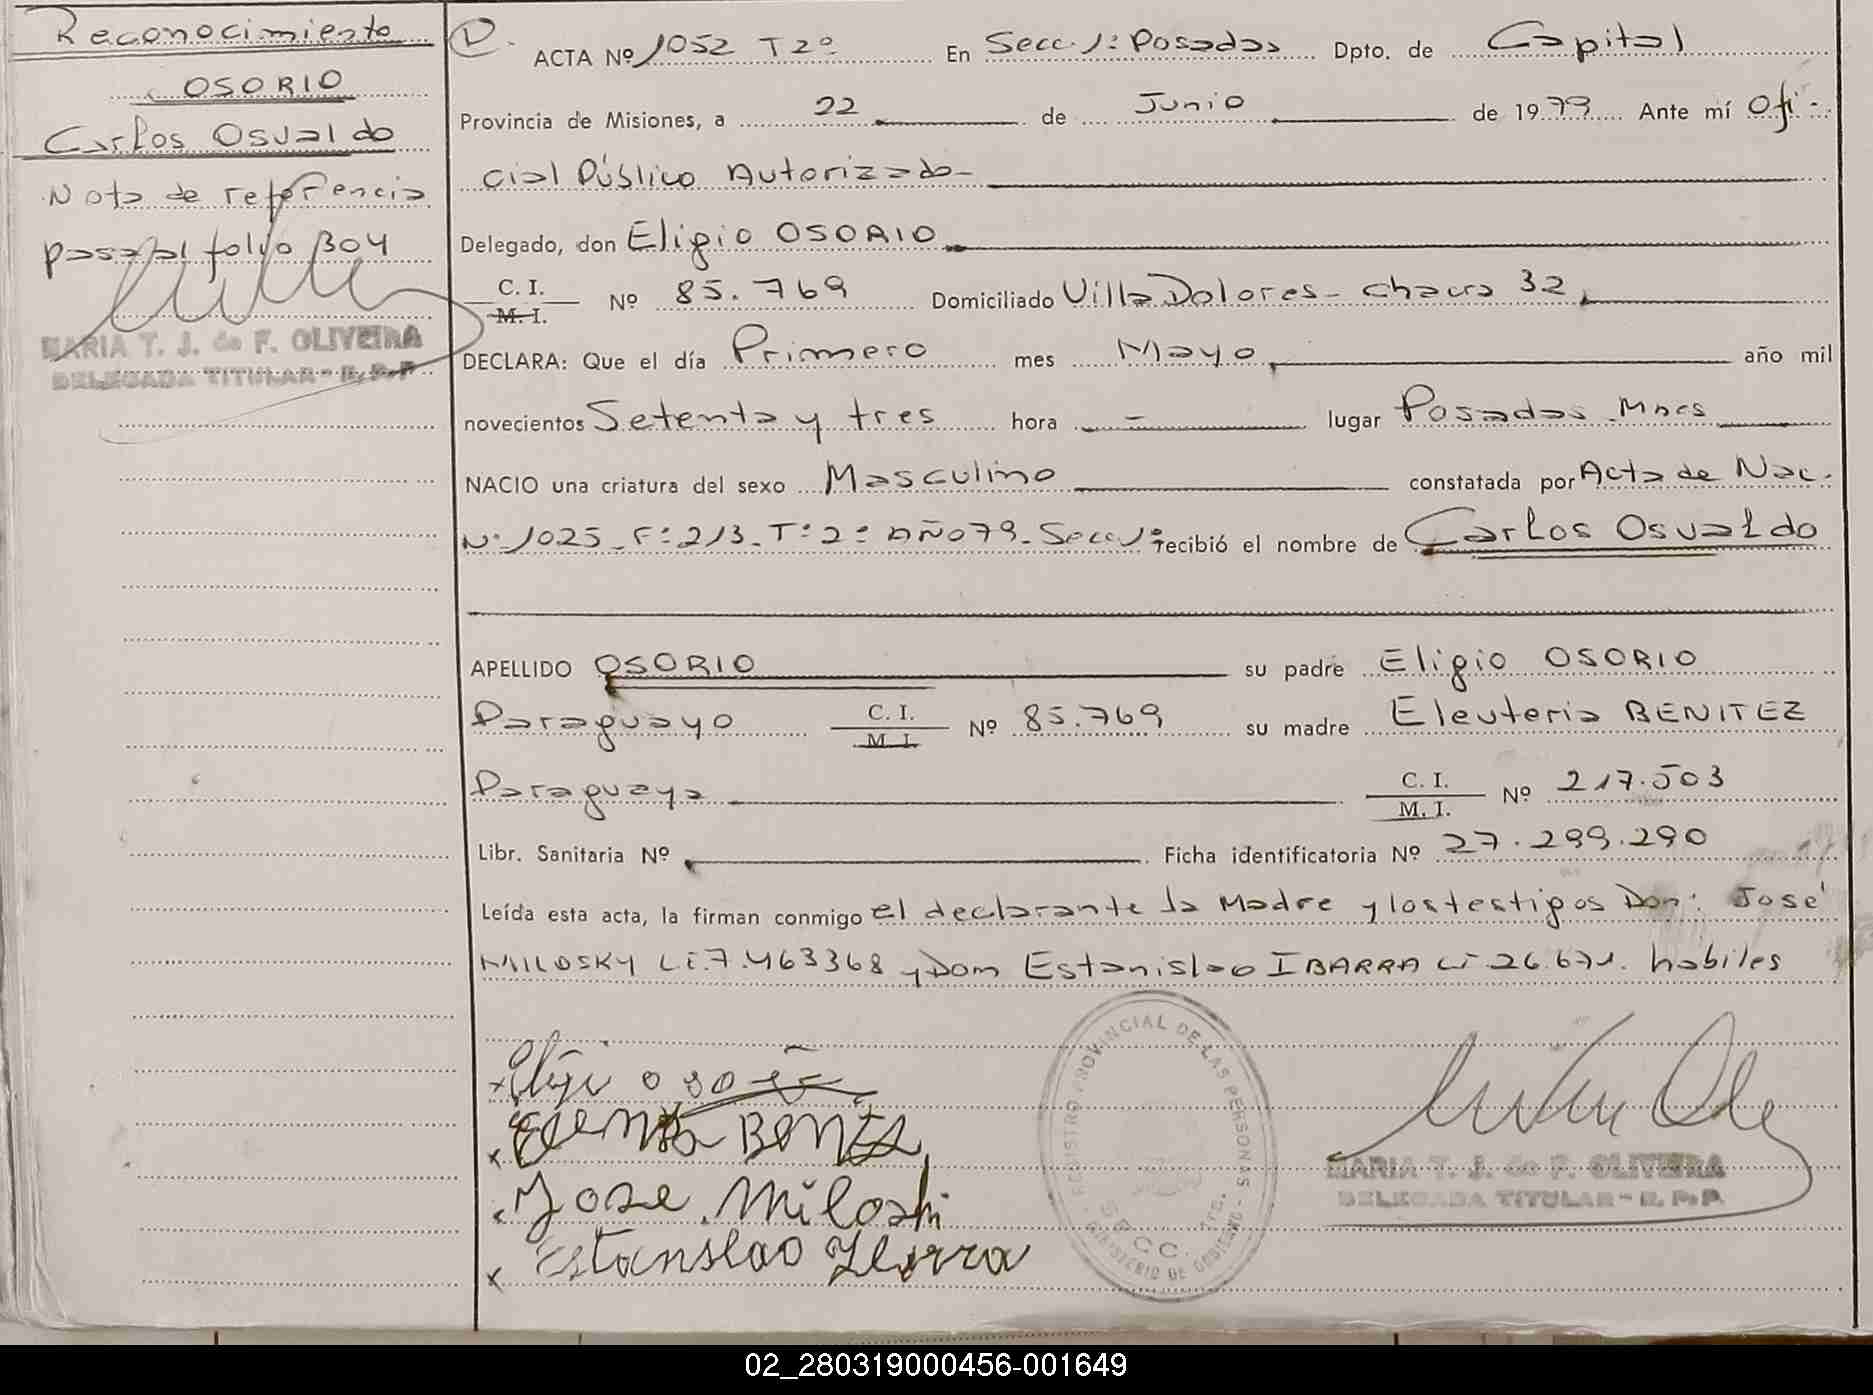 Reconocimiento
OSORIO
Carlos Osvaldo
Nota de referencia
pasa al folio 304
MARIA T. J. de F. OLIVEIRA
DELEGADA TITULAR - R. P. P.
ACTA Nº 1052 T 2º En Secc. 1: Posadas Dpto. de Capital
Provincia de Misiones, a 22 de Junio de 1979 Ante mí Ofi-
cial Público Autorizado-
Delegado, don Eligio OSORIO
C. I. / M. I. Nº 85.769 Domiciliado Villa Dolores - chacra 32
DECLARA: Que el día Primero mes Mayo año mil
novecientos Setenta y tres hora - lugar Posadas Mnes
NACIO una criatura del sexo Masculino constatada por Acta de Nac.
Nº 1025 Fº 213 Tº 2º AÑO 79 - Secc 1º recibió el nombre de Carlos Osvaldo
APELLIDO OSORIO su padre Eligio OSORIO
Paraguayo C. I. / M. I. Nº 85.769 su madre Eleuteria BENITEZ
Paraguaya C. I. / M. I. Nº 217.503
Libr. Sanitaria Nº Ficha identificatoria Nº 27.299.290
Leída esta acta, la firman conmigo el declarante la Madre y los testigos Don: José
MILOSKY L.E. 7.463368 y Don Estanislao IBARRA CI 26.671. habiles
Eligio Osorio
Jose Miloski
Estanslao Ibarra
REGISTRO PROVINCIAL DE LAS PERSONAS - MINISTERIO DE GOBIERNO
SECC. 1ra.
MARIA T. J. de F. OLIVEIRA
DELEGADA TITULAR - R. P. P.
02_280319000456-001649